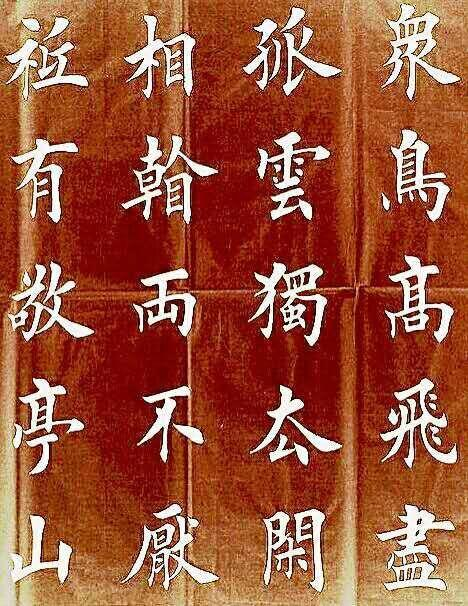 衆鳥髙飛盡
孤雲獨厺閑
相看両不厭
祗有敬亭山